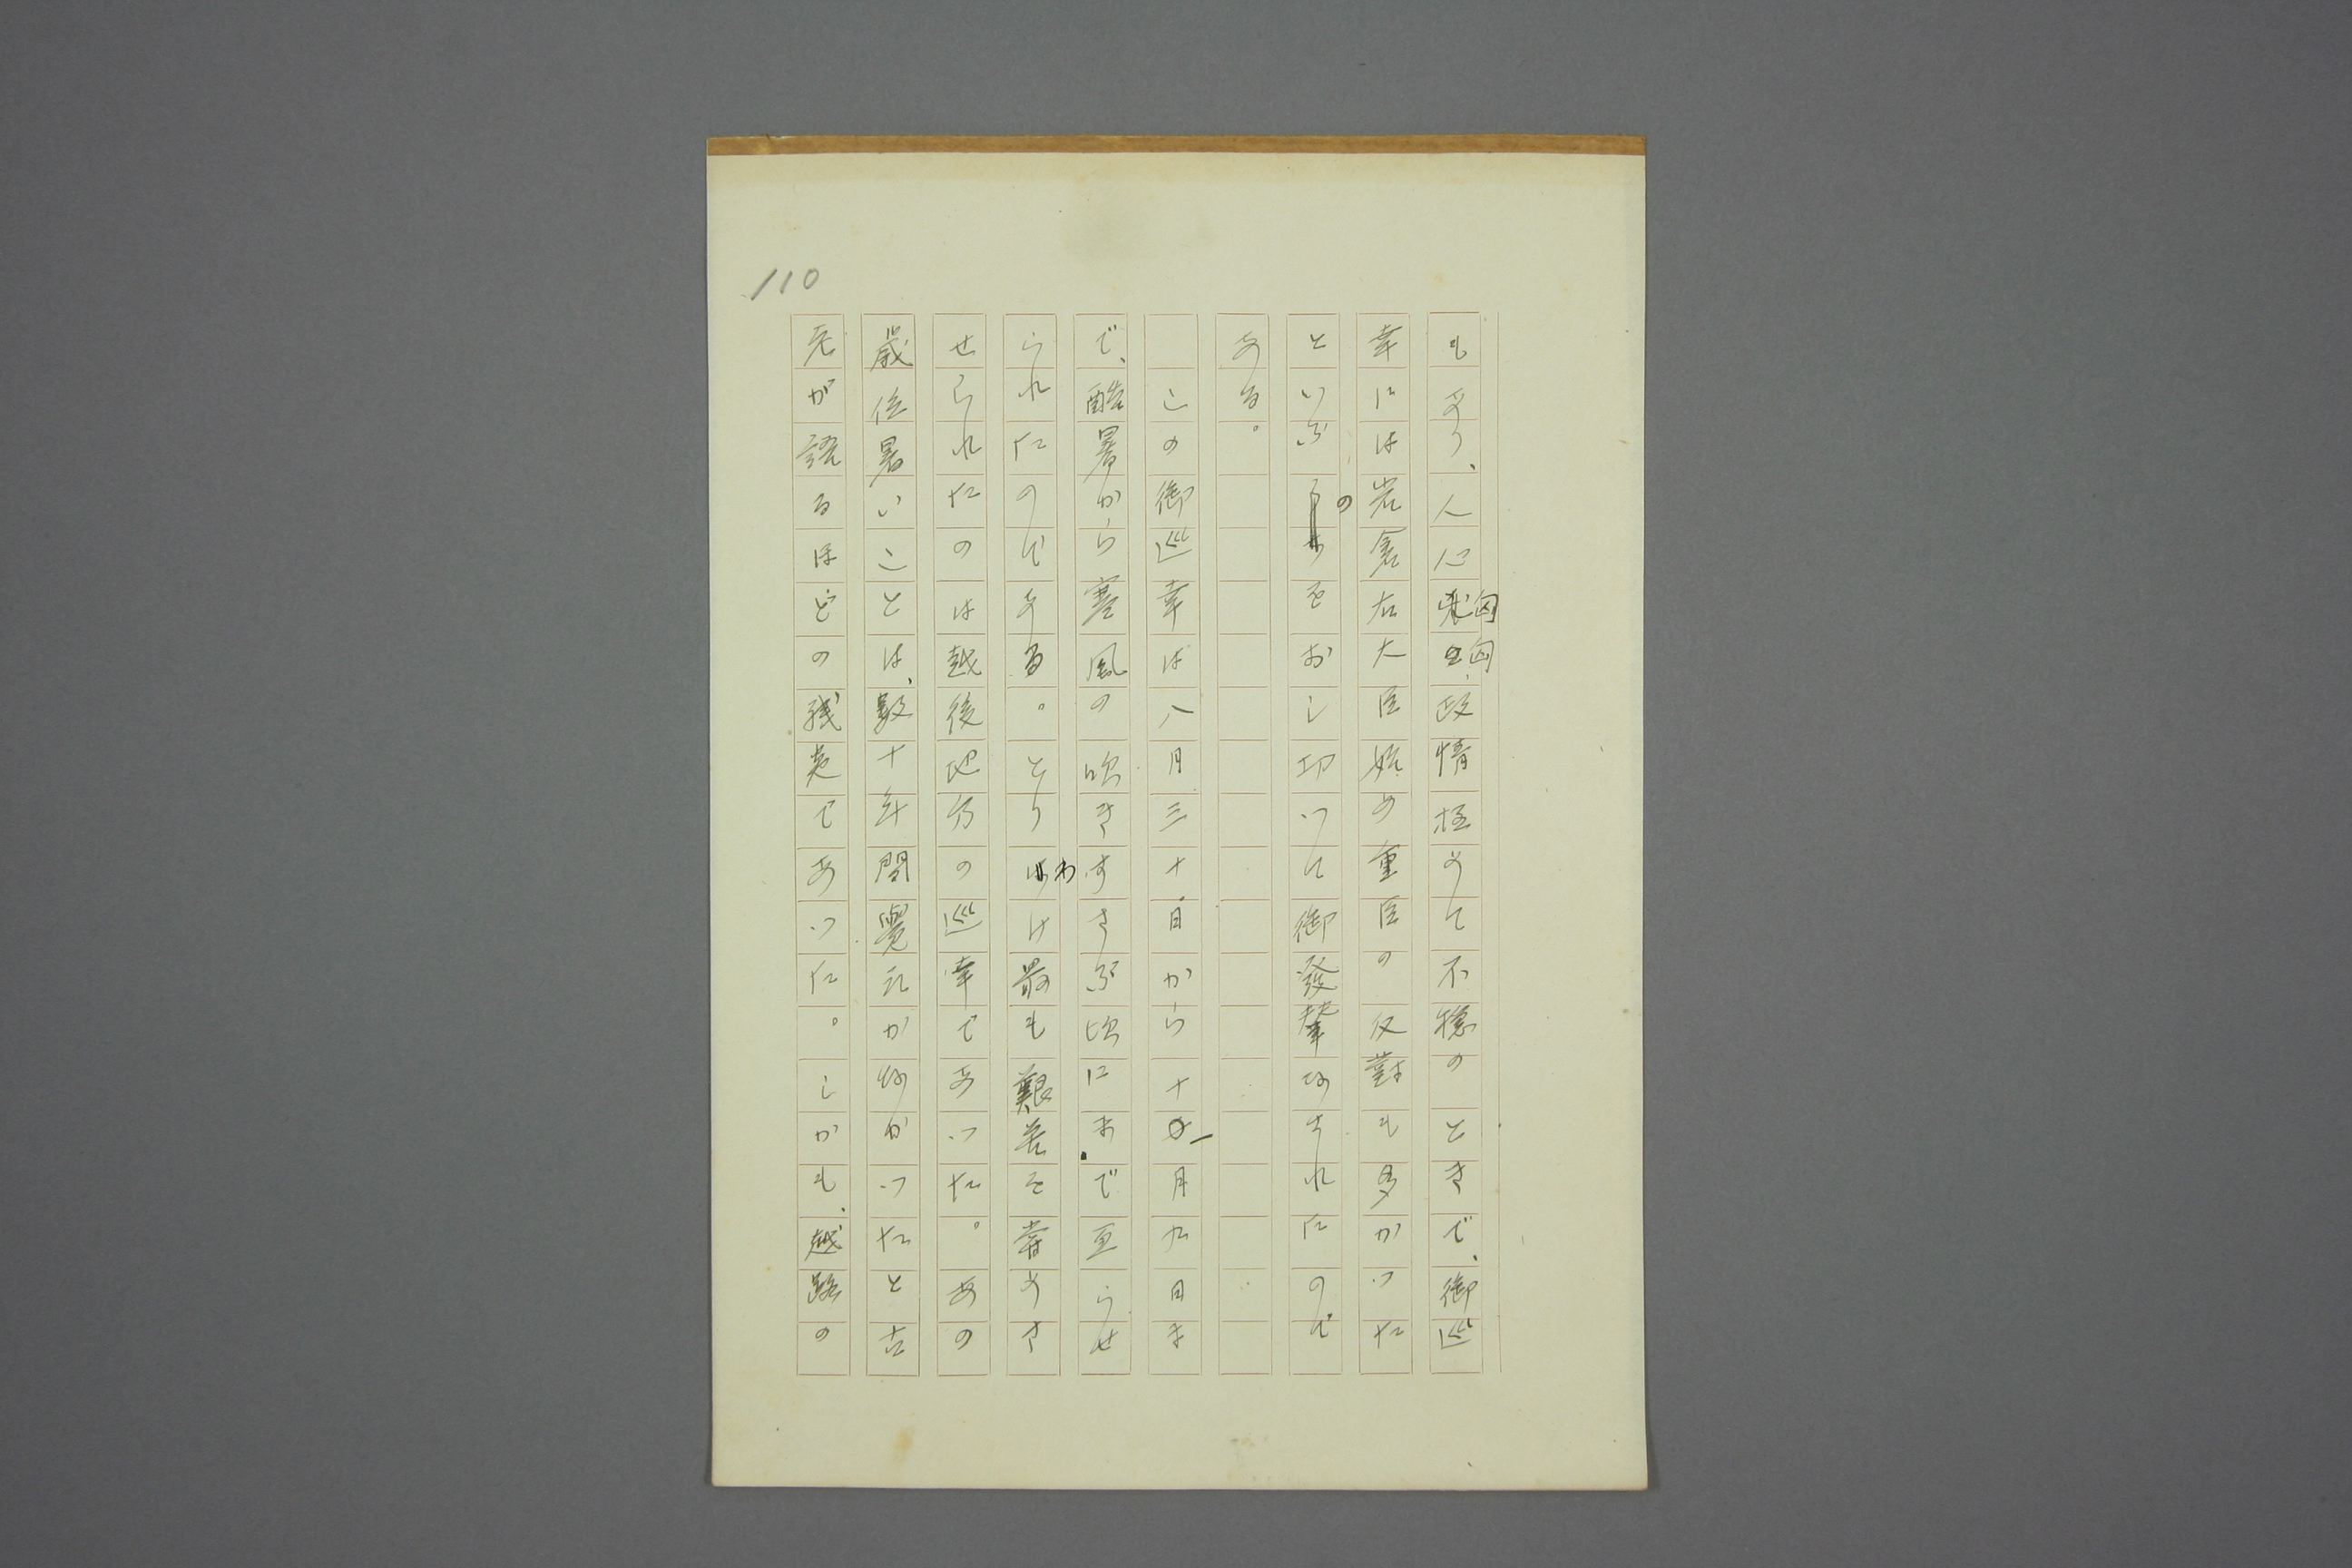 110
もあり、人心匈匈、政情極めて不穏のときで、御巡
幸には岩倉右大臣始め重臣の反對も多かつた
というのをおし切つて御發輦なされたので
ある。
この御巡幸は八月三十日から十一月九日ま
で、酷暑から寒風の吹きすさぶ頃にまで亙らせ
られたのである。とりわけ最も艱苦を嘗めさ
せられたのは越後地方の巡幸であつた。あの
歳位暑いことは、數十年間覺えがなかつたと古
老が語るほどの残暑であつた。しかも、越路の